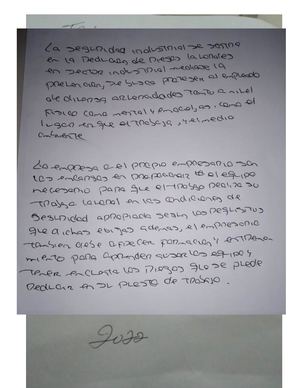 La seguridad industrial se centra
en la Reducción de Riesgos laborales
en sector industrial mediante la
prevención, se busca proteger al empleado
de diversos accidentes tanto a nivel
Físico como mental y emocional, como el
lugar en que el trabaja, y el medio
ambiente
La empresa o el propio empresario son
los encargados en proporcionar el equipo
necesario para que el trabajo realize su
Trabajo laboral en las condiciones de
seguridad apropiada segun los requisitos
que dichas exijas además, el empresario
tambien debe ofrecer formación y entrena
miento para aprender a usar los equipos y
Tener en cuenta los Riesgos que se puede
Reducir en su puesto de Trabajo.
2022